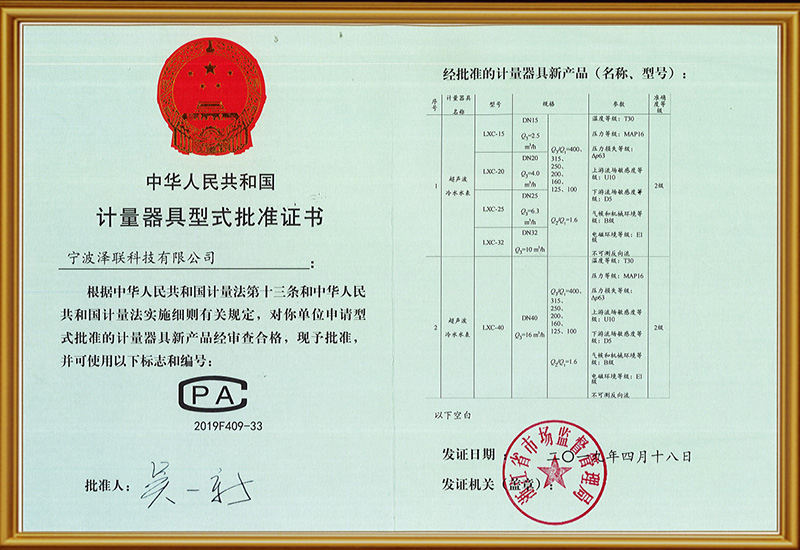 中华人民共和国
计量器具型式批准证书
宁波泽联科技有限公司：
根据中华人民共和国计量法第十三条和中华人民
共和国计量法实施细则有关规定，对你单位申请型
式批准的计量器具新产品经审查合格，现予批准，
并可使用以下标志和编号：
CPA
2019F409-33
批准人：
经批准的计量器具新产品（名称、型号）：
序号 计量器具名称 型号 规格 参数 准确度等级
1 超声波冷水水表
LXC-15 DN15 Q3=2.5 m³/h
LXC-20 DN20 Q3=4.0 m³/h
LXC-25 DN25 Q3=6.3 m³/h
LXC-32 DN32 Q3=10 m³/h
Q3/Q1=400、
315、
250、
200、
160、
125、100
Q2/Q1=1.6
温度等级：T30
压力等级：MAP16
压力损失等级：
Δp63
上游流场敏感度等
级：U10
下游流场敏感度等
级：D5
气候和机械环境等
级：B级
电磁环境等级：E1
级
不可测反向流
2级
2 超声波冷水水表
LXC-40 DN40 Q3=16 m³/h
Q3/Q1=400、
315、
250、
200、
160、
125、100
Q2/Q1=1.6
温度等级：T30
压力等级：MAP16
压力损失等级：
Δp63
上游流场敏感度等
级：U10
下游流场敏感度等
级：D5
气候和机械环境等
级：B级
电磁环境等级：E1
级
不可测反向流
2级
以下空白
发证日期：二〇一九年四月十八日
发证机关（盖章）：
浙江省市场监督管理局